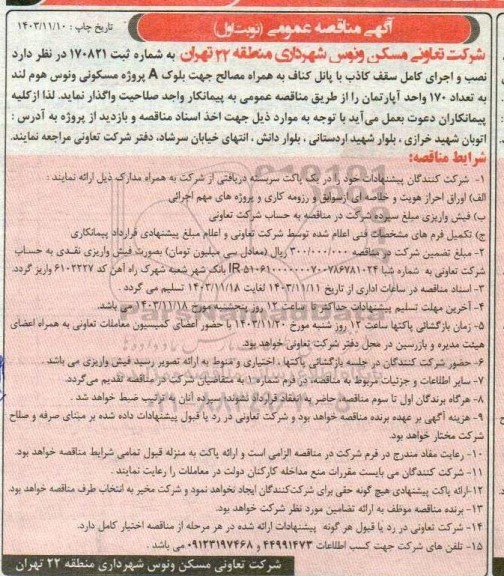 آگهی مناقصه عمومی (نوبت اول)
تاریخ چاپ : ۱۴۰۳/۱۱/۱۰
شرکت تعاونی مسکن ونوس شهرداری منطقه ۲۲ تهران به شماره ثبت ۱۷۰۸۲۱ در نظر دارد
نصب و اجرای کامل سقف کاذب با پانل کناف به همراه مصالح جهت بلوک A پروژه مسکونی ونوس هوم لند
به تعداد ۱۷۰ واحد آپارتمان را از طریق مناقصه عمومی به پیمانکار واجد صلاحیت واگذار نماید. لذا ازکلیه
پیمانکاران دعوت بعمل می‌آید با توجه به موارد ذیل جهت اخذ اسناد مناقصه و بازدید از پروژه به آدرس :
اتوبان شهید خرازی ، بلوار شهید اردستانی ، بلوار دانش ، انتهای خیابان سرشاد، دفتر شرکت تعاونی مراجعه نمایند.
شرایط مناقصه:
۱- شرکت کنندگان پیشنهادات خود را در یک پاکت سربسته دریافتی از شرکت به همراه مدارک ذیل ارائه نمایند :
الف) اوراق احراز هویت و خلاصه ای ازسوابق و رزومه کاری و پروژه های مهم اجرائی
ب) فیش واریزی مبلغ سپرده شرکت در مناقصه به حساب شرکت تعاونی
ج) تکمیل فرم های مشخصات فنی اعلام شده توسط شرکت تعاونی و اعلام مبلغ پیشنهادی قرارداد پیمانکاری
۲- مبلغ تضمین شرکت در مناقصه ۳۰۰/۰۰۰/۰۰۰ ریال (معادل سی میلیون تومان) بصورت فیش واریزی نقدی به حساب
شرکت تعاونی به شماره شبا IR ۵۱۰۶۱۰۰۰۰۰۰۷۰۰۷۸۶۷۸۱۰۲۴ بانک شهر شعبه شهرک راه آهن کد ۶۱۰۲۲۲۷ واریز گردد.
۳- اسناد مناقصه در ساعات اداری از تاریخ ۱۴۰۳/۱۱/۱۱ لغایت ۱۴۰۳/۱۱/۱۸ تسلیم می گردد .
۴- آخرین مهلت تسلیم پیشنهادات حداکثر تا ساعت ۱۲ روز پنجشنبه مورخ ۱۴۰۳/۱۱/۱۸ می باشد.
۵- زمان بازگشائی پاکتها ساعت ۱۲ روز شنبه مورخ ۱۴۰۳/۱۱/۲۰ با حضور اعضای کمیسیون معاملات تعاونی به همراه اعضای
هیئت مدیره و بازرسین در محل دفتر شرکت تعاونی خواهد بود.
۶- حضور شرکت کنندگان در جلسه بازگشائی پاکتها ، اختیاری و منوط به ارائه تصویر رسید فیش واریزی می باشد .
۷- سایر اطلاعات و جزئیات مربوط به مناقصه، در فرم شماره یک به متقاضیان شرکت در مناقصه تقدیم می‌گردد.
۸- هرگاه برندگان اول تا سوم مناقصه حاضر به انعقاد قرارداد نشوند؛ سپرده آنان به ترتیب ضبط خواهد شد .
۹- هزینه آگهی بر عهده برنده مناقصه خواهد بود و شرکت تعاونی در رد یا قبول پیشنهادات داده شده بر مبنای صرفه و صلاح
شرکت مختار خواهد بود.
۱۰- رعایت مفاد مندرج در فرم شرکت در مناقصه الزامی است و ارائه پاکت به منزله قبول تمامی شرایط مناقصه خواهد بود.
۱۱- شرکت کنندگان می بایست مقررات منع مداخله کارکنان دولت در معاملات را رعایت نمایند .
۱۲-ارائه پاکت پیشنهادی هیچ گونه حقی برای شرکت‌کنندگان ایجاد نخواهد نمود و شرکت مخیر به انتخاب طرف مناقصه خواهد بود.
۱۳- برنده مناقصه موظف به ارائه تضامین مورد نظر شرکت خواهد بود.
۱۴- شرکت تعاونی در رد یا قبول هر گونه پیشنهادات ارائه شده در هر مرحله از مناقصه اختیار کامل دارد.
۱۵- تلفن های شرکت جهت کسب اطلاعات ۴۴۹۹۱۴۷۳ و ۰۹۱۲۳۱۹۷۴۶۸ می باشد .
شرکت تعاونی مسکن ونوس شهرداری منطقه ۲۲ تهران